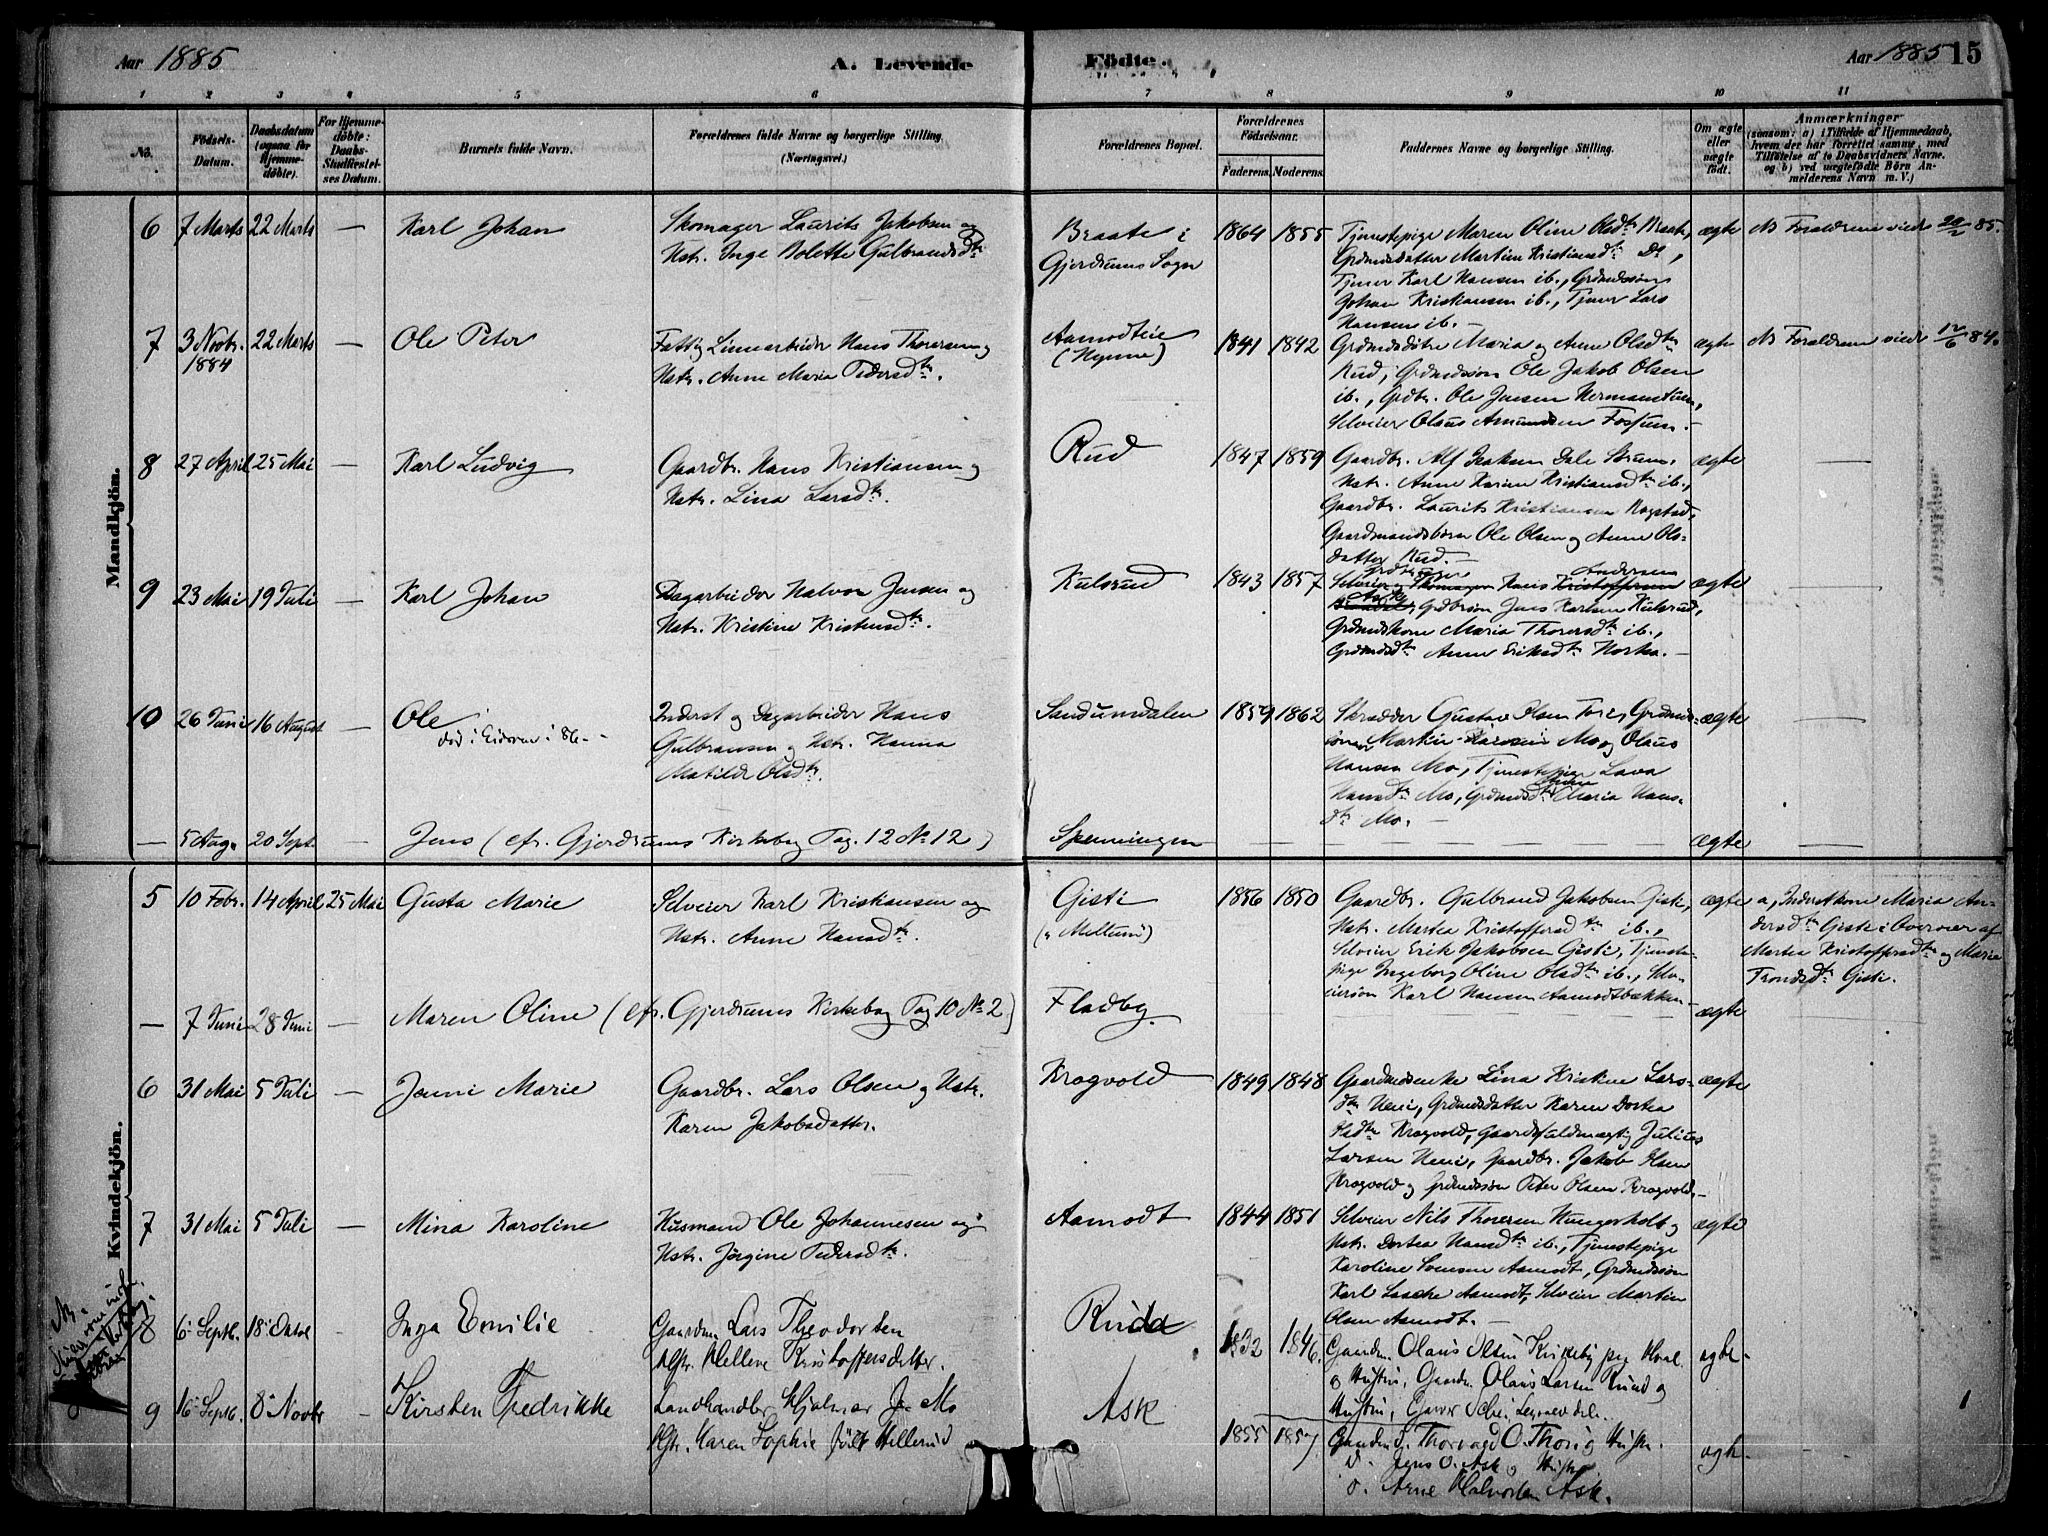 Aar 1885
A. Levende
Födte.
Aar 1885 15
1 2 3 4 5 6 7 8 9 10 11
No.
Födsels-
Datum.
Daabsdatum
(ogsaa for
Hjemme-
døbte).
For Hjemme-
døbte:
Daabs-
Stadfæstel-
ses Datum.
Barnets fulde Navn.
Forældrenes fulde Navne og borgerlige Stilling.
(Næringsvei.)
Forældrenes Bopæl.
Forældrenes
Födselsaar.
Faderens. Moderens.
Faddernes Navne og borgerlige Stilling.
Om ægte
eller
uægte
født.
Anmærkninger
(saasom: a) i Tilfælde af Hjemmedaab,
hvem der har forrettet samme, med
Tilføielse af to Daabsvidners Navne.
og b) ved uægtefødte Börn An-
melderens Navn m. V.)
Mandkjön.
6 7 Marts 22 Marts — Karl Johan
Skomager Laurits Jakobsen og
Hstr. Inge Bolette Gulbrandsdtr
Braate i
Gjerdrums Sogn
1864 1855
Tjenestepige Maren Oline Olsdtr Braate,
Grdmdsdatter Martine Kristiansdtr Do,
Tjener Karl Hansen ib., Grdmdssøn
Johan Kristiansen ib., Tjener Lars
Hansen ib. —
ægte
Nb Forældrene viede 20/2 85.
7 3 Novbr. 22 Marts — Ole Peter
1884
Fattig Linnarbeider Hans Thoresen og
Hstr. Anne Maria Pedersdtr.
Aamodteie
(Nynne)
1841 1842
Grdmdsdøtre Maria og Anne Olsdtr
Rud, Grdmdssøn Ole Jakob Olsen
ib., Grdbr. Ole Jensen Hermanstuen,
Selveier Olaus Amundsen Fossum. —
ægte
Nb Forældrene viede 12/6 84.
8 27 April 25 Mai — Karl Ludvig
Gaardbr. Hans Kristiansen og
Hstr. Lina Larsdtr.
Rud
1847 1859
Gaardbr. Alf Isaksen Dale
Hstr. Anne Karine Kristiansdtr ib.,
Gaardbr. Laurits Kristiansen Rogstad,
Gaardmandsbørn Ole Olsen og Anne Ols-
datter Rud. —
ægte —
9 23 Mai 19 Juli — Karl Johan
Dagarbeider Halvor Jensen og
Hstr. Kristine Kristensdtr.
Kulsrud
1843 1857
Andersen
Selveier Hans Kristoffersen
Grdbrsøn Jens Karlsen Kulsrud,
Grdmdskone Maria Thoresdtr ib.,
Grdmdsdtr Anne Eriksdtr Horka. —
ægte —
10 26 Juni 16 August — Ole
død i Eidsvo i 86. -
Inderst og Dagarbeider Hans
Gulbransen og Hstr. Hanna
Matilde Olsdtr.
Sandumdalen
1859 1862
Skrædder Gustav Olsen Tori, Grdmds-
sønner Martin Hansen Mo og Olaus
Hansen Mo, Tjenestepige Lava
Hansdtr Mo, Grdmdsdtr Maria Hans-
dtr Mo. —
ægte —
— 5 Aug. 20 Sept. — Jens (cfr. Gjerdrums Kirkebog Pag. 12 No 12)
Spenningen
ægte —
Kvindekjön.
5 10 Febr. 14 April 25 Mai Gusta Marie
Selveier Karl Kristiansen og
Hstr. Anne Hansdtr.
Gisti
(" Meltuni)
1856 1850
Gaardbr. Gulbrand Jakobsen Giske,
Hstr. Martea Kristoffersdtr ib.,
Selveier Erik Jakobsen Gisti, Tjeneste-
pige Ingeborg Oline Olsdtr ib., Selv-
eiersøn Karl Hansen Aamodtbakken —
ægte
a, Inderstkone Maria An-
dersdtr Gisti i Overvær af
Martea Kristoffersdtr og Maria
Trondsdtr Gisti.
— 7 Juni 28 Juni — Maren Oline (cfr. Gjerdrums Kirkebog Pag 10 No 2)
Fladby
ægte
6 31 Mai 5 Juli — Jenni Marie
Gaardbr. Lars Olsen og Hstr.
Karen Jakobsdatter.
Krogvold
1849 1848
Gaardmdsenke Lina Kristine Lars-
dtr Heni, Grdmdsdatter Karen Dortea
Olsdtr Krogvold, Gaardsfuldmægtig Julius
Larsen Heni, Gaardbr. Jakob Olsen
Krogvold og Grdmdssøn Peter Olsen Krogvold. —
ægte
7 31 Mai 5 Juli — Mina Karoline
Husmand Ole Johannesen og
Hstr. Jørgine Pedersdtr.
Aamodt
1844 1851
Selveier Nils Thoresen Hungerholt og
Hstr. Dortea Hansdtr ib., Tjenestepige
Karoline Svensen Aamodt, Grdmdssøn
Karl Aamodt, Selveier Martin
Olsen Aamodt. —
ægte
8 6 Septb. 18 Octbr Inga Emilie
Gaardm Lars Theodorsen
Hstr. Hellene Kristoffersdatter.
Ruda
1832 1846.
Gaardm. Olaus Olsen Kirkeby
o Hustru, Gaardm. Olaus Larsen Ruud og
Hustru,
ægte -
9 16 Septb. 8 Novbr - Kirsten Fredrikke
Landhandler Hjalmar J. Mo
Hstr. Karen Sophie født Hellerud
Ask
1855 1857
Gaardm. Thorvald O. Thori og Hustr.
o. Jens O. Ask o Hustr
o. Arne Halvorsen Ask.
ægte